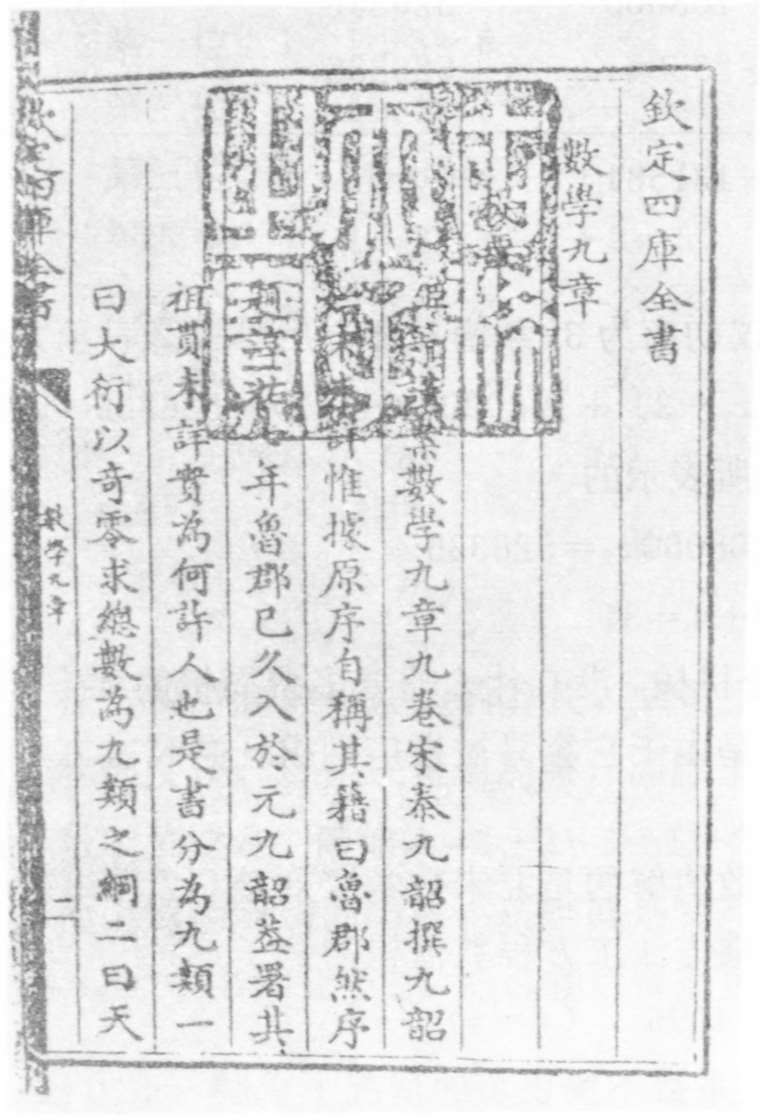 欽定四庫全書
數學九章
臣等謹案數學九章九卷宋秦九韶撰九韶
末未詳惟據原序自稱其籍曰魯郡然序
題淳祐七年魯郡已久入於元九韶葢署其
祖貫未詳實為何許人也是書分為九類一
曰大衍以奇零求總數為九類之綱二曰天
欽定四庫全書
數學九章
二